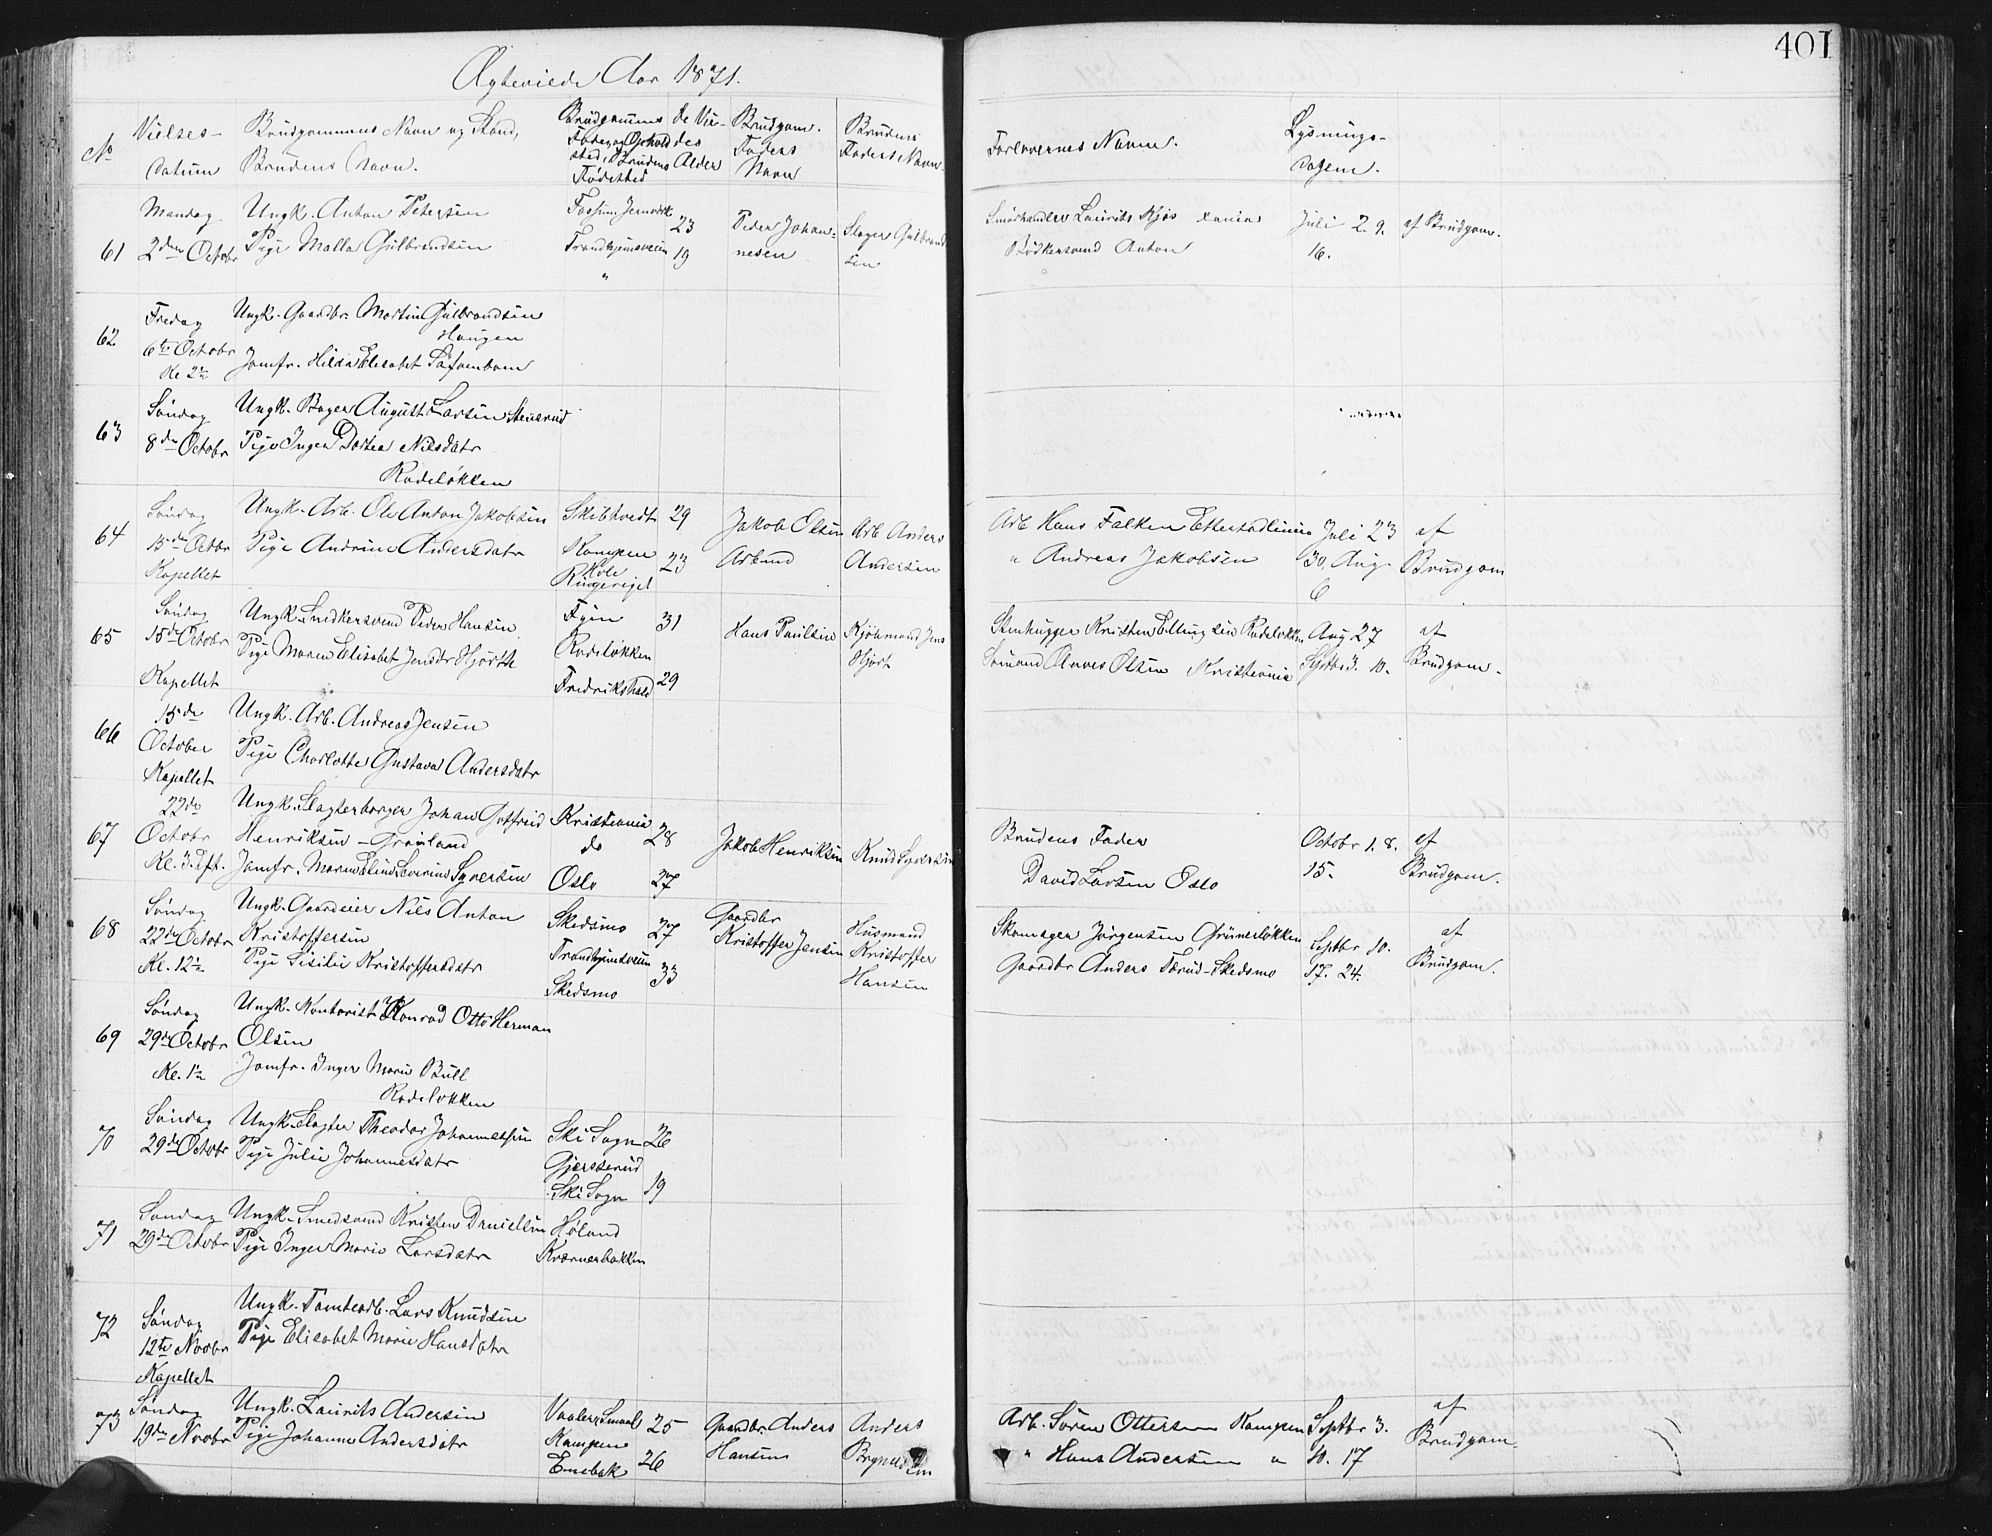 401
Ægteviede Aar 1871.
No
Vielses-
Datum
Brudgommens Navn og Stand,
Brudens Navn.
Brudgommens
Føde og Ophold
sted, Brudens
Fødested
de Vie-
des
Alder
Brudgom.
Faders
Navn
Brudens
Faders Navn.
Forlovernes Navne.
Lysnings-
Dagene.
61
Mandag
2den Octobr
Ungk. Anton Petersen
Pige Malla Gulbrandsen
Fossum Jernværk
Trondhjemsveien
"
23
19
Peder Johan-
nesen
Slager Gulbrand
sen
Smørhandler Laurits Kjøs Xania
Bødkersvend Anton
Juli 2. 9.
16.
af Brudgom.
62
Fredag
6te Octobr
Kl. 2½
Ungk. Gaardbr. Martin Gulbrandsen
Haugen
Jomfr. Hilda Elisabet Säfvenbom
63
Søndag
8de Octobr
Ungk. Bager August Larsen Stenerud
Pige Inger Dortea Nilsdatr
Rodeløkken
64
Søndag
15de Octbr
Kapellet
Ungk. Arb. Ole Anton Jakobsen
Pige Andrine Andersdatr
Skibtvedt
Kampen
Hole
Ringeriget
29
23
Jakob Olsen
Arbmd
Arb Anders
Andersen
Arb Hans Falken Ekerstadlinien
" Andreas Jakobsen
Juli 23
30, Aug.
6
af
Brudgom
65
Søndag
15de Octobr
Kapellet
Ungk. Snedkersvend Peder Hansen
Pige Maren Elisabet Jensdtr Hjorth
Fyen
Rodeløkken
Fredrikshald
31
29
Hans Paulsen
Kjøbmand Jens
Hjort
Stenhugger Kristen Ellingsen Rodeløkken
Sømand Annes Olsen Kristiania
Aug 27
Septbr 3. 10.
af
Brudgom.
66
15de
October
Kapellet
Ungk. Arb. Andreas Jensen
Pige Charlotte Gustava Andersdatr
67
22de
Octobr
Kl. 3. Eft.
Ungk. Slagterborger Johan Gotfried
Henriksen - Grønland
Jomfr. Maren Eline Severine Syversen
Kristiania
do
Oslo
28
27
Jakob Henriksen
Knud Syversen
Brudens Fader
David Larsen Oslo
Octobr 1. 8.
15.
af
Brudgom.
68
Søndag
22de Octobr
Kl. 12½
Ungk. Gaardeier Nils Anton
Kristoffersen
Pige Sisilie Kristoffersdatr
Skedsmo
Trondhjemsveien
Skedsmo
27
33
Gaardbr
Kristoffer Jensen
Husmand
Kristoffer
Hansen
Skomager Jørgensen Grünerløkken
Gaardbr Anders Tærud-Skedsmo
Septbr 10.
17. 24.
af
Brudgom.
69
Søndag
29de Octobr
Kl. 1½
Ungk. Kontorist Konrad Otto Herman
Olsen
Jomfr. Inger Marie Bull
Rodeløkken
70
Søndag
29de Octobr
Ungk. Slagter Theodor Johannessen
Pige Julie Johannesdatr
Ski Sogn
Gjersterud
Ski Sogn
26
19
71
Søndag
29de Octobr
Ungk. Smedsvend Kristen Danielsen
Pige Inger Marie Larsdatr
Høland
Kværnerbakken
72
Søndag
12te Novbr
Kapellet
Ungk. Tomtearb. Lars Knudsen
Pige Elisabet Marie Hansdatr
73
Søndag
19de Novbr
Ungk. Laurits Andersen
Pige Johanne Andersdatr
Vaaler Smaal
Kampen
Enebak
25
26
Gaardbr. Anders
Hansen
Anders
Brynildsen
Arb. Søren Ottersen Kampen
" Hans Andersen "
Septbr 3.
10. 17
af
Brudgom.